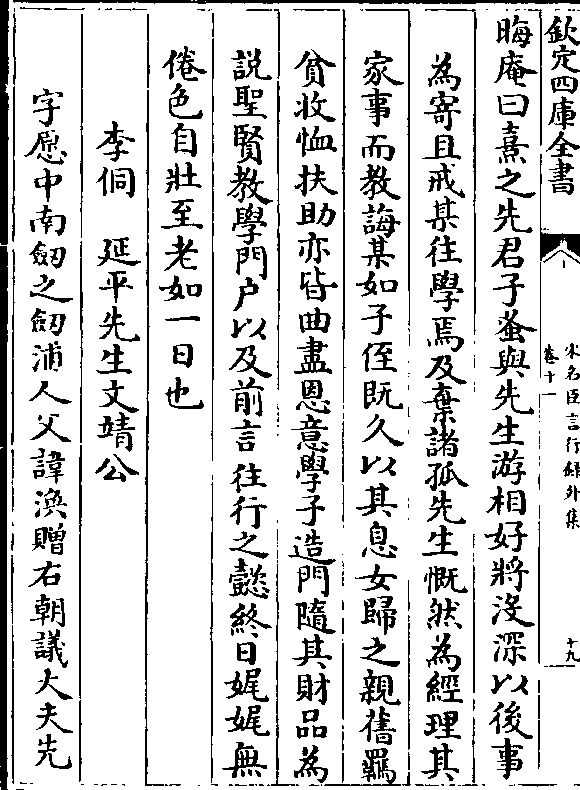 欽定四庫全書
宋名臣言行録外集
卷十一
十九
晦庵曰熹之先君子蚤與先生游相好將沒深以後事
為寄且戒某往學焉及棄諸孤先生慨然為經理其
家事而教誨某如子侄既久以其息女歸之親舊羈
貧收恤扶助亦皆曲盡恩意學子造門隨其財品為
説聖賢教學門户以及前言往行之懿終日娓娓無
倦色自壯至老如一日也
李侗　延平先生文靖公
字愿中南劒之劒浦人父諱渙贈右朝議大夫先